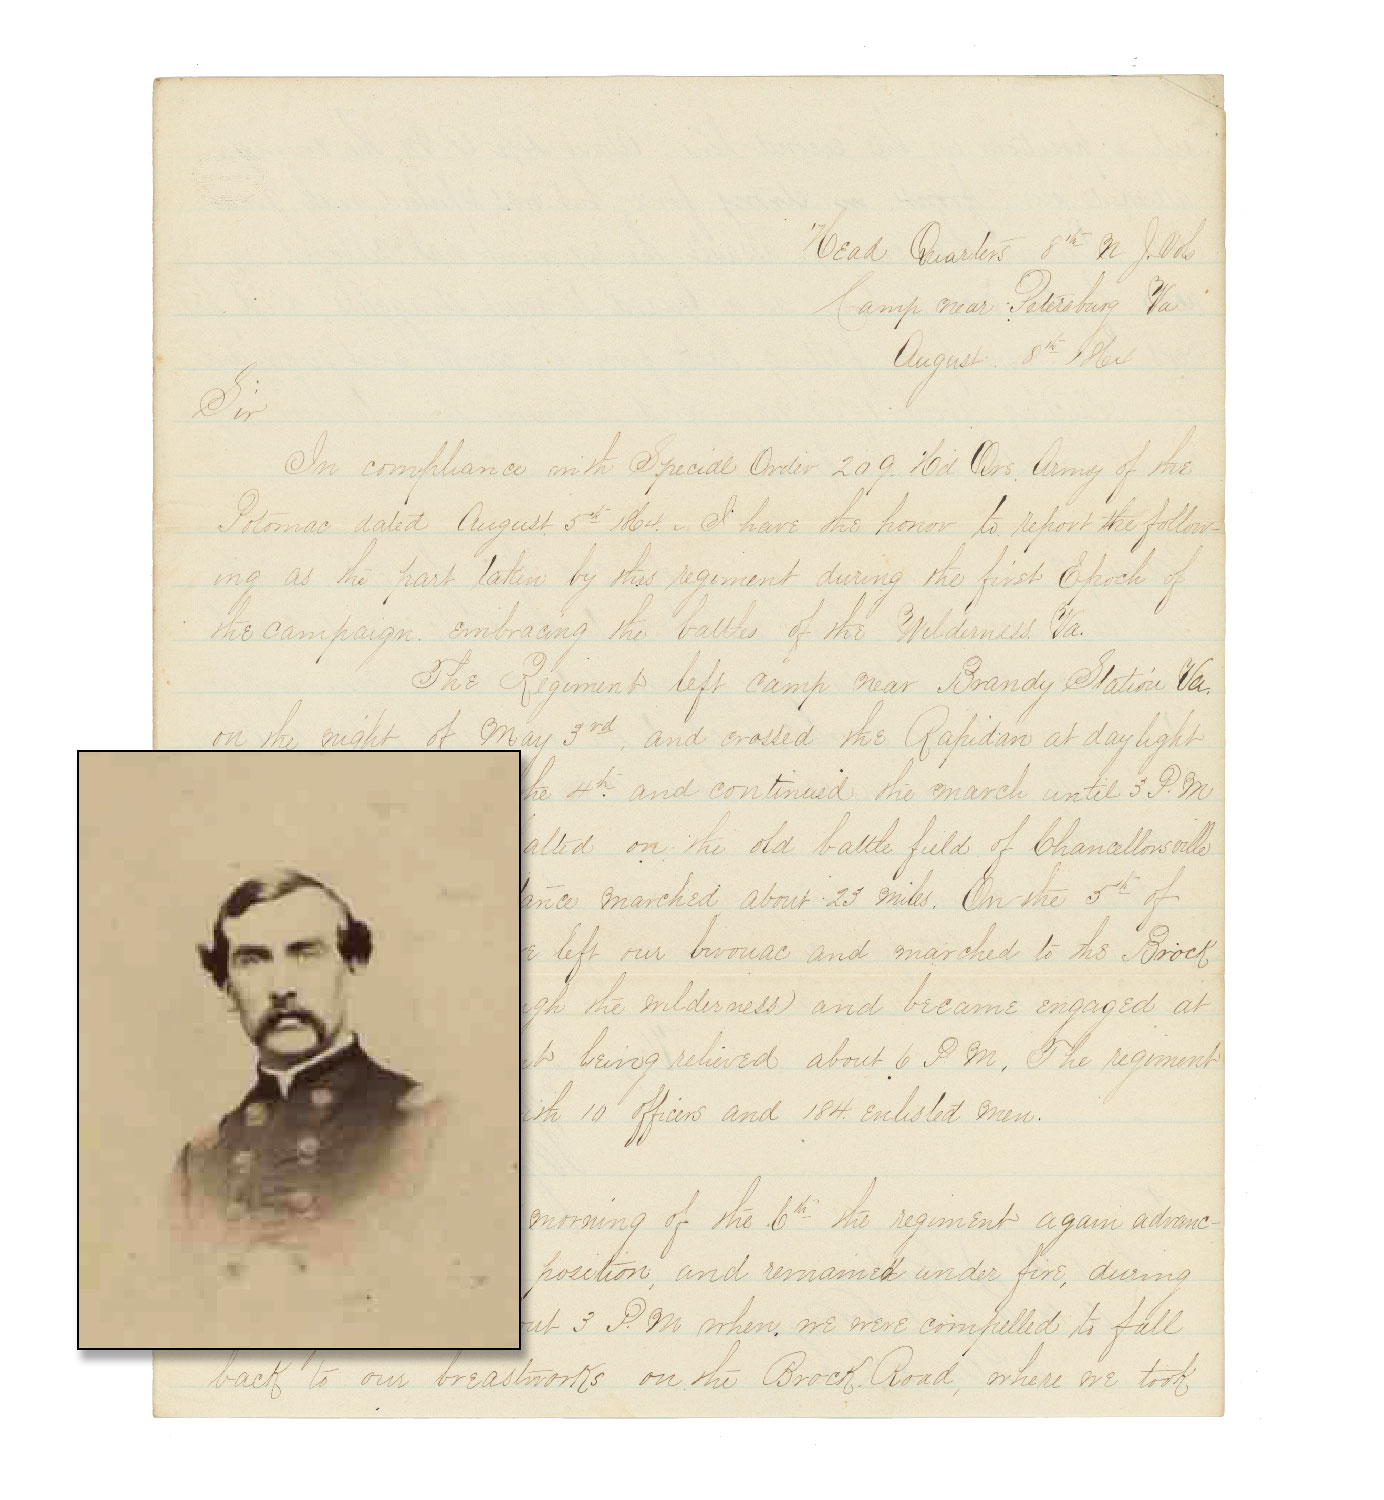 Head Quarters 8th N J. Vols
Camp near Petersburg Va
August 8th 1864
Sir
In compliance with Special Order 209. Hd Qrs. Army of the
Potomac dated August 5th 1864. I have the honor to report the follow-
ing as the part taken by this regiment during the first Epoch of
the campaign. embracing the battles of the Wilderness. Va.
The Regiment left camp near Brandy Station Va.
on the night of May 3rd, and crossed the Rapidan at daylight
the 4th and continued the march until 3 P.M
alted on the old battle field of Chancellorsville
ance marched about 23 miles. On the 5th of
e left our bivouac and marched to the Brock
ugh the wilderness) and became engaged at
being relieved about 6 P M. The regiment
ith 10 officers and 184 enlisted men.
morning of the 6th the regiment again advanc-
position, and remained under fire, during
out 3 P.M when. we were compelled to fall
back to our breastworks on the Brock Road, where we took